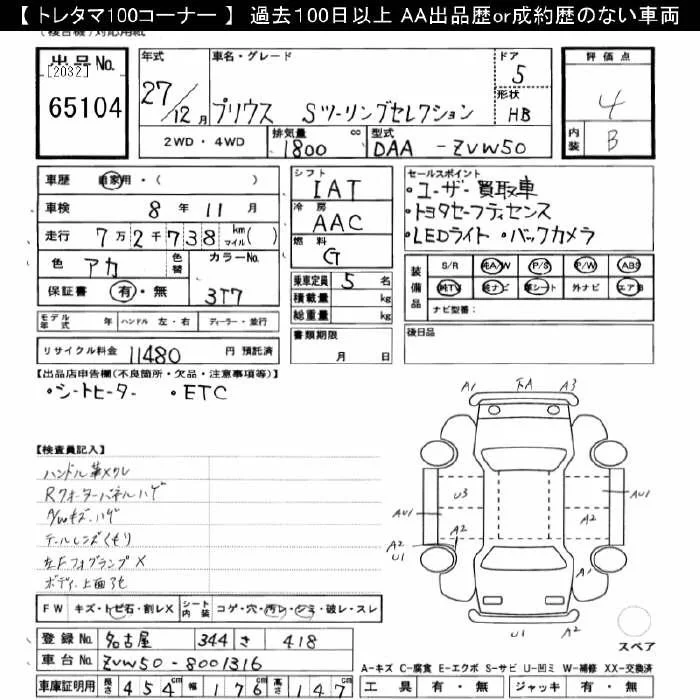 【 トレタマ100コーナー 】 過去100日以上 AA出品歴or成約歴のない車両
(複合機)対応用紙
出品No.
[2032]
65104
年式
27/12月
車名・グレード
プリウス Sツーリングセレクション
ドア
5
形状
HB
2WD・4WD
排気量
cc
1800
型式
DAA - ZVW50
評価点
4
内装
B
車歴 自家用・( )
車検 8 年 11 月
走行 7万2千738 km マイル( )
色 アカ 色替 カラーNo.
3T7
保証書 有・無
シフト
IAT
冷房
AAC
燃料
G
乗車定員 5 名
積載量 kg
総重量 kg
セールスポイント
・ユーザー買取車
・トヨタセーフティセンス
・LEDライト ・バックカメラ
装備品
S/R 純A/W P/S P/W ABS
純TV 純ナビ 革シート 外ナビ エアB
ナビ型番:
モデル年式 年 ハンドル 左・右 ディーラー・並行
リサイクル料金 11480 円 預託済
書類期限
月 日
後日品
【出品店申告欄(不良箇所・欠品・注意事項等)】
・シートヒーター ・ETC
【検査員記入】
ハンドル革スレ
Rクォーターパネルハゲ
A/Wキズ、ハゲ
テールレンズくもり
左Fフォグランプ X
ボディ上面
A1 下A A3
U3
AU1
AU1
A2
A2
A2
U1
A1
U1 A2
スペア
FW キズ・トビ石・割レX シート内装 コゲ・穴・汚レ・シミ・破レ・スレ
登録No. 名古屋 344 き 418
車台No. ZVW50-8001316
車庫証明用 長さ 454cm 幅 176cm 高さ 147cm
A-キズ C-腐食 E-エクボ S-サビ U-凹ミ W-補修 XX-交換済
工具 有・無 ジャッキ 有・無